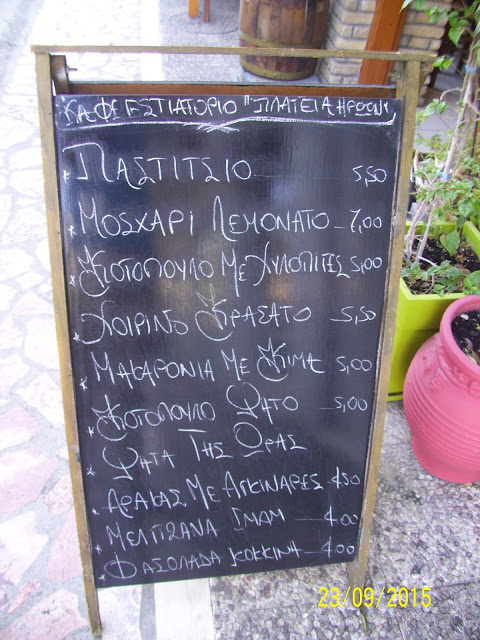 ΚΑΦΕ ΕΣΤΙΑΤΟΡΙΟ "ΠΛΑΤΕΙΑ ΗΡΩΩΝ"
ΠΑΣΤΙΤΣΙΟ 5,50
ΜΟSΧΑΡΙ ΛΕΜΟΝΑΤΟ 7,00
ΚΟΤΟΠΟΥΛΟ ΜΕ ΧΥΛΟΠΙΤΕΣ 5,00
ΧΟΙΡΙΝΟ ΚΡΑΣΑΤΟ 5,50
ΜΑΚΑΡΟΝΙΑ ΜΕ ΚΙΜΑ 5,00
ΚΟΤΟΠΟΥΛΟ ΨΗΤΟ 5,00
ΨΗΤΑ ΤΗΣ ΩΡΑΣ
ΑΡΑΚΑΣ ΜΕ ΑΓΚΙΝΑΡΕΣ 4,50
ΜΕΛΙΤΖΑΝΑ ΙΜΑΜ 4,00
ΦΑΣΟΛΑΔΑ ΚΟΚΚΙΝΗ 4,00
23/09/2015